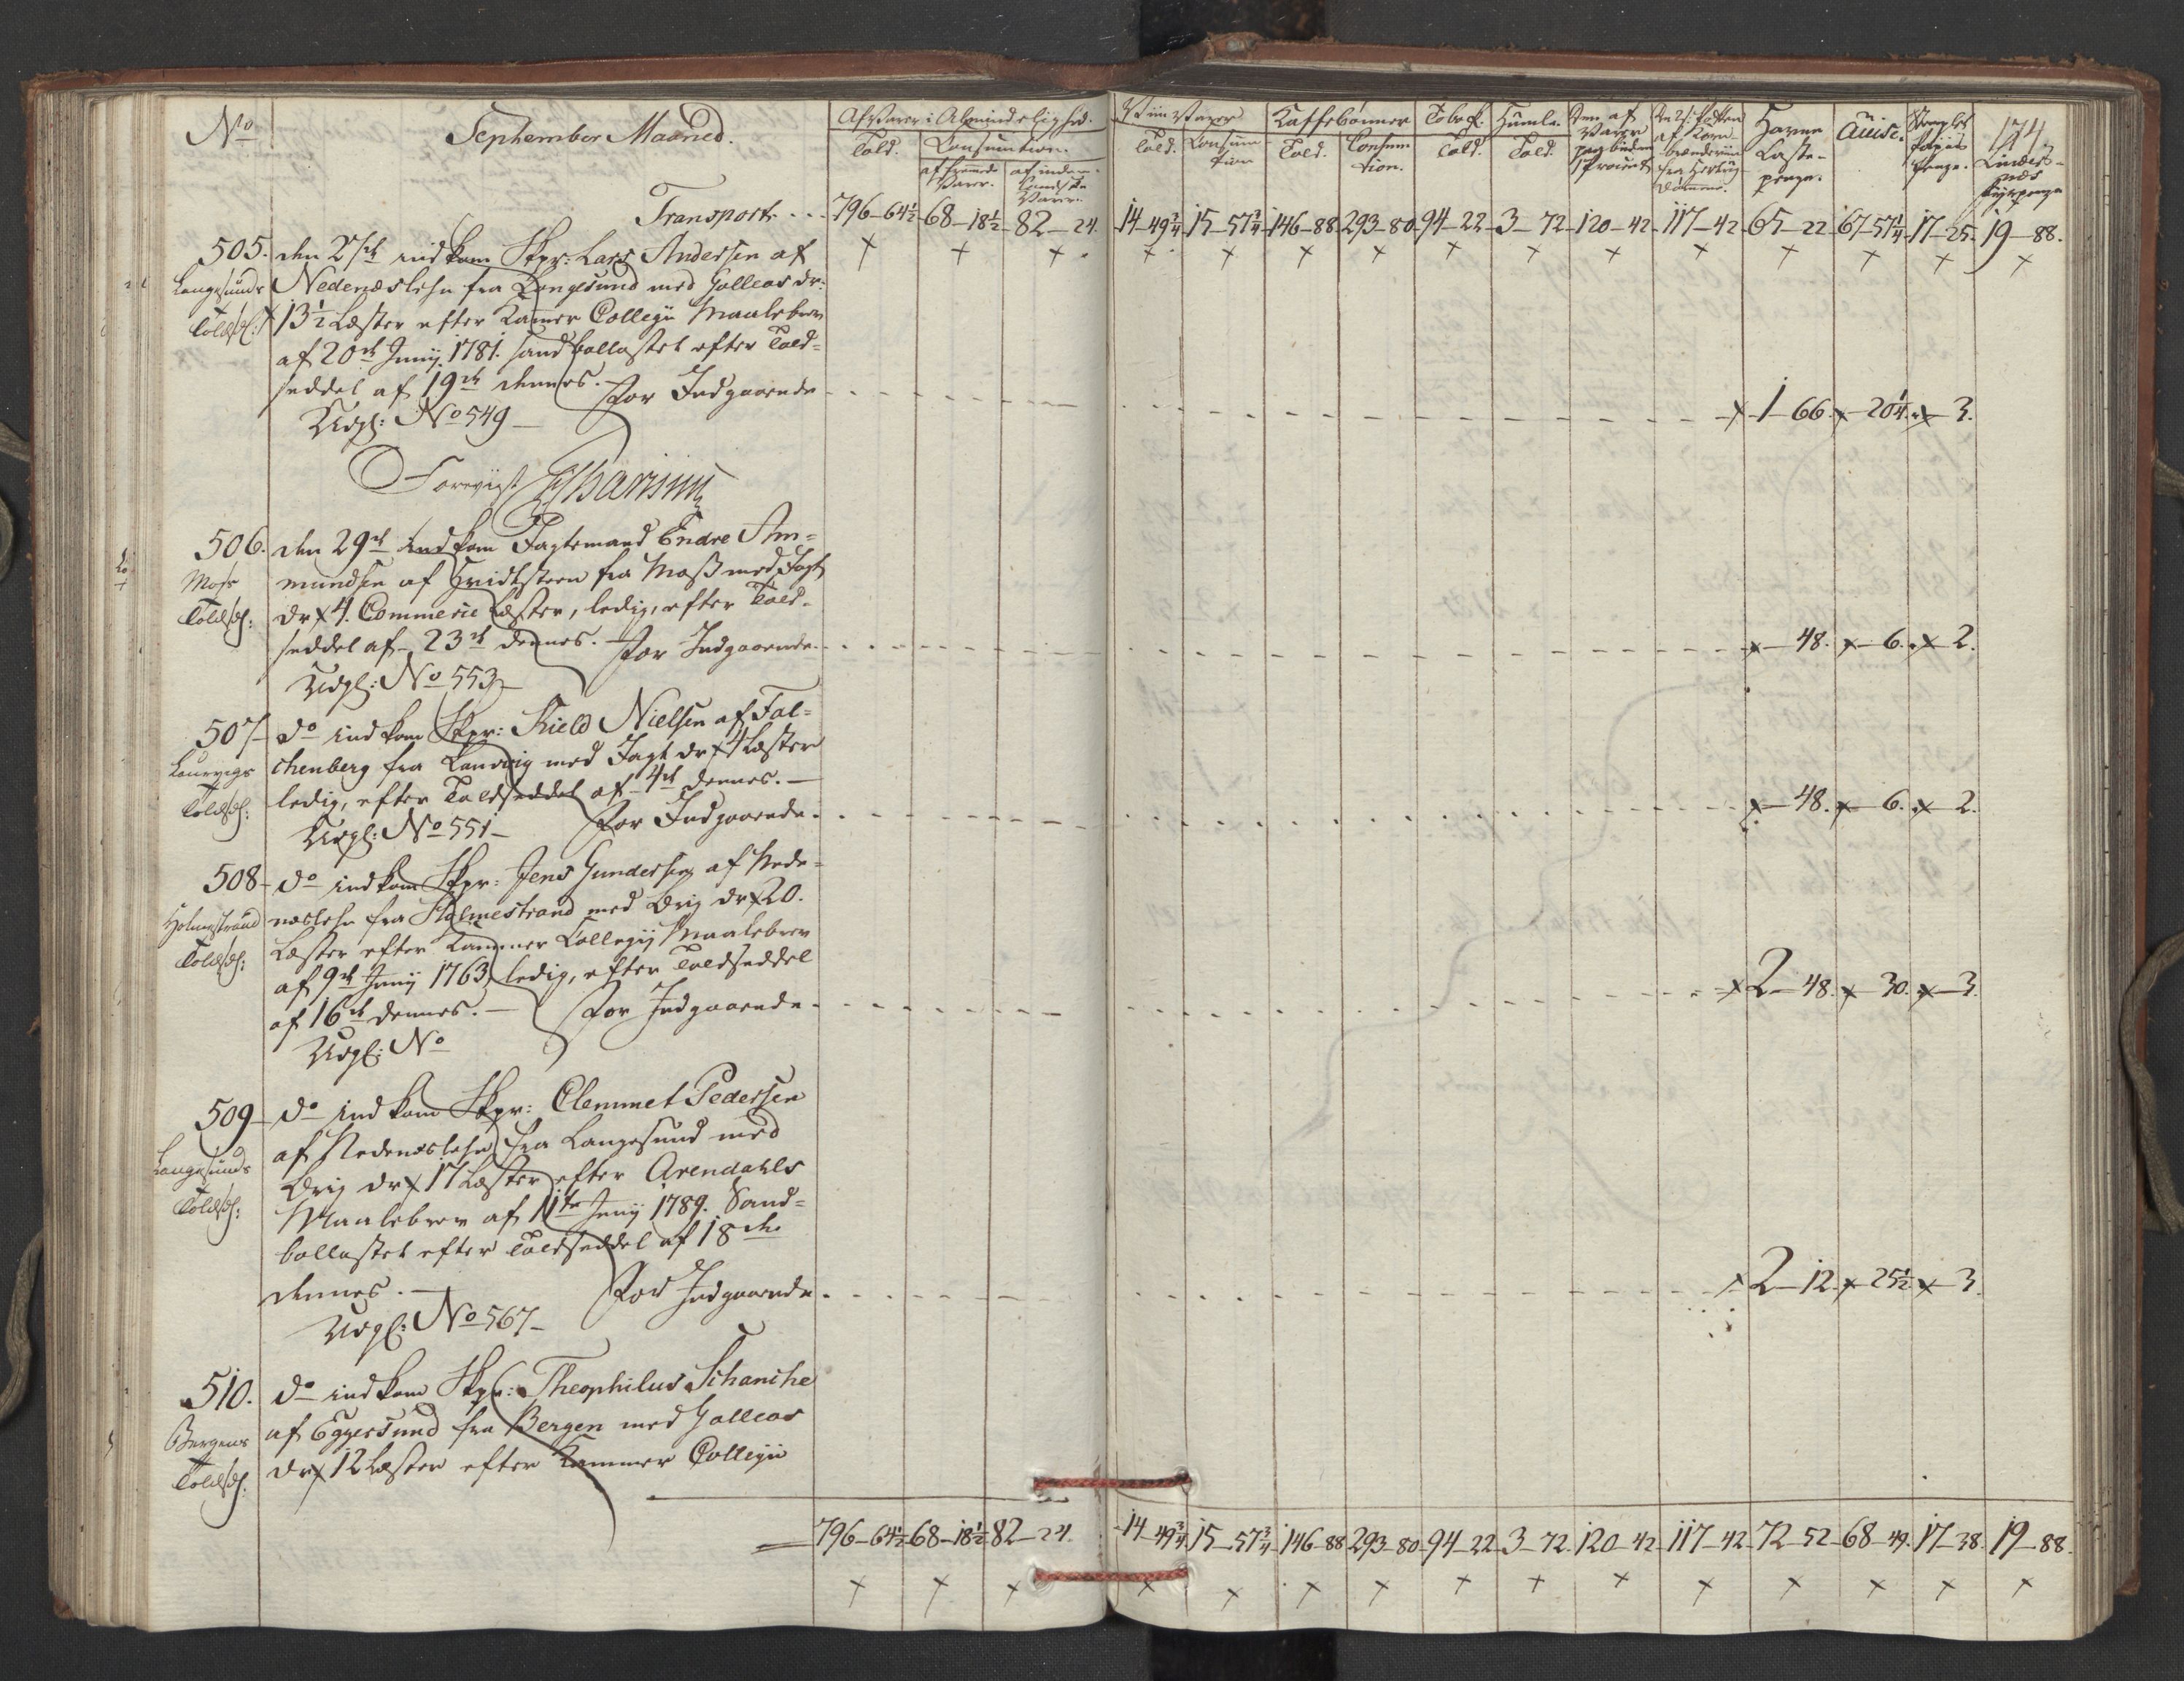 No
September Maaned.
Af Varer i Almindelighed.
Told.
Consumtion.
af fremede Varer.
af inden-landske Varer.
Viin Varer
Told.
Consumtion
Kaffebønner
Told.
Consumtion.
Tobak.
Told.
Humle.
Told.
Havne
Læste-
penge.
Accise.
174.
Lindes-
næs
Fyrpenge
Transport...
796-64½
68-18½
82-24.
14-49¾
15-57¾
146-88
293-80
94-22
3-72
120-42
117-42
65-22
67-57¼
17-25
19-88.
505.
Langesunds
Toldsedl:
den 27de indkom Skpr: Lars Andersen af
Nedenæslehn fra Langesund med Galleas dr:
13½ Læster efter Kamer Collegii Maalebrev
af 20de Junij 1781. sandballastet efter Told=
seddel af 19de dennes. For Indgaaende
1-66. 20¼. 3.
Udgl: No 549
Foreviist
506.
Moss
Toldsedl:
den 29de indkom Jagtemand Endre Am=
mundsen af Hvidtsteen fra Moss med Jagt
dr: 4. Commerce Læster, ledig, efter Told-
seddel af 23de dennes. For Indgaaende
48. 6. 2.
Udgl: No 553
507
Laurvigs
Toldsedl:
do indkom Skpr: Kield Nielsen af Fal=
chenberg fra Laurvig med Jagt dr: 4 Læster
ledig, efter Toldseddel af 4de dennes.
For Indgaaende.
48. 6. 2.
Udgl: No 551
508
Holmestrand
Toldsedl:
do indkom Skpr: Jens Gundersen af Nede=
næslehn fra Holmestrand med Brig dr: 20.
Læster efter Kammer Collegij Maalebrev
af 9de Junij 1763, ledig, efter Toldseddel
af 16de dennes. For Indgaaende
2-48. 30. 3.
Udgl: No
509
Langesunds
Toldsedl:
do indkom Skpr: Clemmet Pedersen
af Nedenæslehn fra Langesund med
Brig dr: 17 Læster efter Arendahls
Maalebrev af 11te Junij 1789. Sand=
ballastet efter Toldseddel af 18de
dennes. For Indgaaende
2-12. 25½ 3.
Udgl: No 567
510.
Bergens
Toldsedl:
do indkom Skpr: Theophilus Schanche
af Eggersund fra Bergen med Galleas
dr: 12 Læster efter Kammer Collegii
796-64½
68-18½
82-24.
14-49¾
15-57¾
146-88
293-80
94-22
3-72
120-42
117-42
72-52
68-49.
17-38.
19-88.